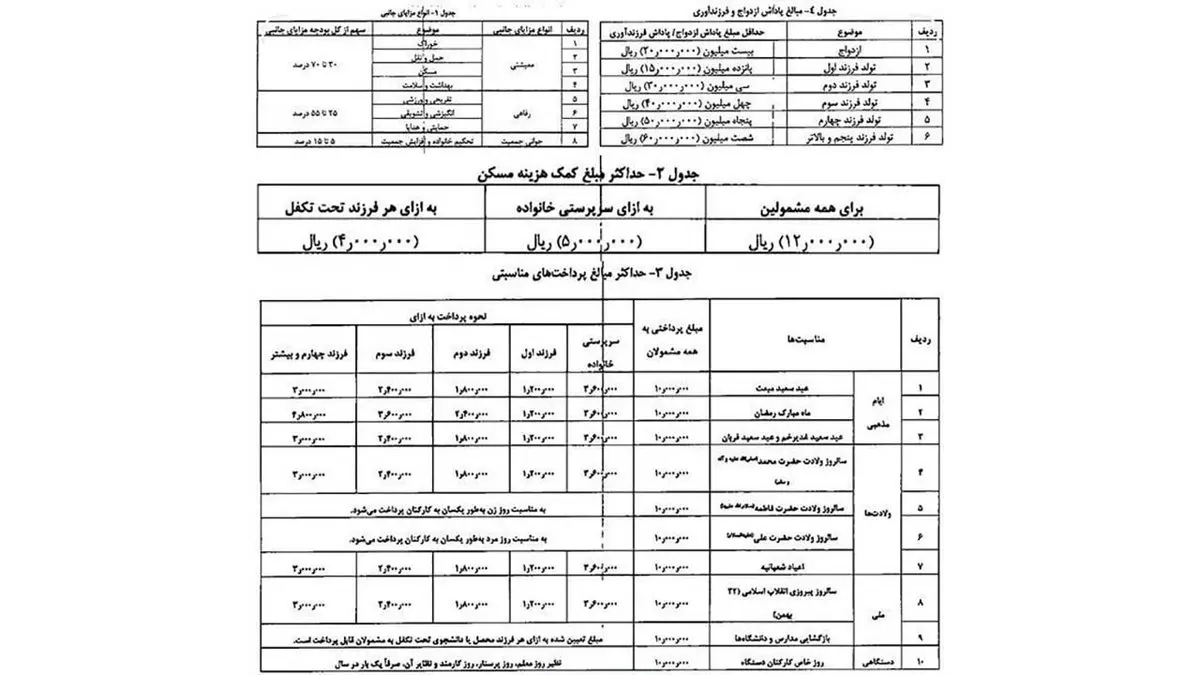 جدول ۴- مبالغ پاداش ازدواج و فرزندآوری
ردیف موضوع حداقل مبلغ پاداش ازدواج/ پاداش فرزندآوری
۱ ازدواج بیست میلیون (۲۰٫۰۰۰٫۰۰۰) ریال
۲ تولد فرزند اول پانزده میلیون (۱۵٫۰۰۰٫۰۰۰) ریال
۳ تولد فرزند دوم سی میلیون (۳۰٫۰۰۰٫۰۰۰) ریال
۴ تولد فرزند سوم چهل میلیون (۴۰٫۰۰۰٫۰۰۰) ریال
۵ تولد فرزند چهارم پنجاه میلیون (۵۰٫۰۰۰٫۰۰۰) ریال
۶ تولد فرزند پنجم و بالاتر شصت میلیون (۶۰٫۰۰۰٫۰۰۰) ریال
جدول ۱- انواع مزایای جانبی
ردیف انواع مزایای جانبی موضوع سهم از کل بودجه مزایای جانبی
۱ معیشتی خوراک ۳۰ تا ۷۰ درصد
۲ حمل و نقل
۳ مسکن
۴ بهداشت و سلامت
۵ رفاهی تفریحی و ورزشی ۲۵ تا ۵۵ درصد
۶ انگیزشی و تشویقی
۷ حمایتی و هدایا
۸ جوانی جمعیت تحکیم خانواده و افزایش جمعیت ۵ تا ۱۵ درصد
جدول ۲- حداکثر مبلغ کمک هزینه مسکن
برای همه مشمولین به ازای سرپرستی خانواده به ازای هر فرزند تحت تکفل
(۱۲٫۰۰۰٫۰۰۰) ریال (۵٫۰۰۰٫۰۰۰) ریال (۴٫۰۰۰٫۰۰۰) ریال
جدول ۳- حداکثر مبالغ پرداخت‌های مناسبتی
ردیف مناسبت‌ها مبلغ پرداختی به همه مشمولان نحوه پرداخت به ازای
سرپرستی خانواده فرزند اول فرزند دوم فرزند سوم فرزند چهارم و بیشتر
ایام مذهبی
۱ عید سعید مبعث ۱۰٫۰۰۰٫۰۰۰ ۳٫۶۰۰٫۰۰۰ ۱٫۲۰۰٫۰۰۰ ۱٫۸۰۰٫۰۰۰ ۲٫۴۰۰٫۰۰۰ ۳٫۰۰۰٫۰۰۰
۲ ماه مبارک رمضان ۱۰٫۰۰۰٫۰۰۰ ۳٫۶۰۰٫۰۰۰ ۱٫۲۰۰٫۰۰۰ ۲٫۴۰۰٫۰۰۰ ۳٫۶۰۰٫۰۰۰ ۴٫۸۰۰٫۰۰۰
۳ عید سعید غدیرخم و عید سعید قربان ۱۰٫۰۰۰٫۰۰۰ ۳٫۶۰۰٫۰۰۰ ۱٫۲۰۰٫۰۰۰ ۱٫۸۰۰٫۰۰۰ ۲٫۴۰۰٫۰۰۰ ۳٫۰۰۰٫۰۰۰
ولادت‌ها
۴ سالروز ولادت حضرت محمد ۱۰٫۰۰۰٫۰۰۰ ۳٫۶۰۰٫۰۰۰ ۱٫۲۰۰٫۰۰۰ ۱٫۸۰۰٫۰۰۰ ۲٫۴۰۰٫۰۰۰ ۳٫۰۰۰٫۰۰۰
۵ سالروز ولادت حضرت فاطمه ۱۰٫۰۰۰٫۰۰۰ به مناسبت روز زن به‌طور یکسان به کارکنان پرداخت می‌شود.
۶ سالروز ولادت حضرت علی ۱۰٫۰۰۰٫۰۰۰ به مناسبت روز مرد به‌طور یکسان به کارکنان پرداخت می‌شود.
۷ اعیاد شعبانیه ۱۰٫۰۰۰٫۰۰۰ ۳٫۶۰۰٫۰۰۰ ۱٫۲۰۰٫۰۰۰ ۱٫۸۰۰٫۰۰۰ ۲٫۴۰۰٫۰۰۰ ۳٫۰۰۰٫۰۰۰
ملی
۸ سالروز پیروزی انقلاب اسلامی (۲۲ بهمن) ۱۰٫۰۰۰٫۰۰۰ ۳٫۶۰۰٫۰۰۰ ۱٫۲۰۰٫۰۰۰ ۱٫۸۰۰٫۰۰۰ ۲٫۴۰۰٫۰۰۰ ۳٫۰۰۰٫۰۰۰
۹ بازگشایی مدارس و دانشگاه‌ها ۱۰٫۰۰۰٫۰۰۰ مبلغ تعیین شده به ازای هر فرزند محصل یا دانشجوی تحت تکفل به مشمولان قابل پرداخت است.
۱۰ دستگاهی روز خاص کارکنان دستگاه ۱۰٫۰۰۰٫۰۰۰ نظیر روز معلم، روز پرستار، روز کارمند و نظایر آن، صرفاً یک بار در سال